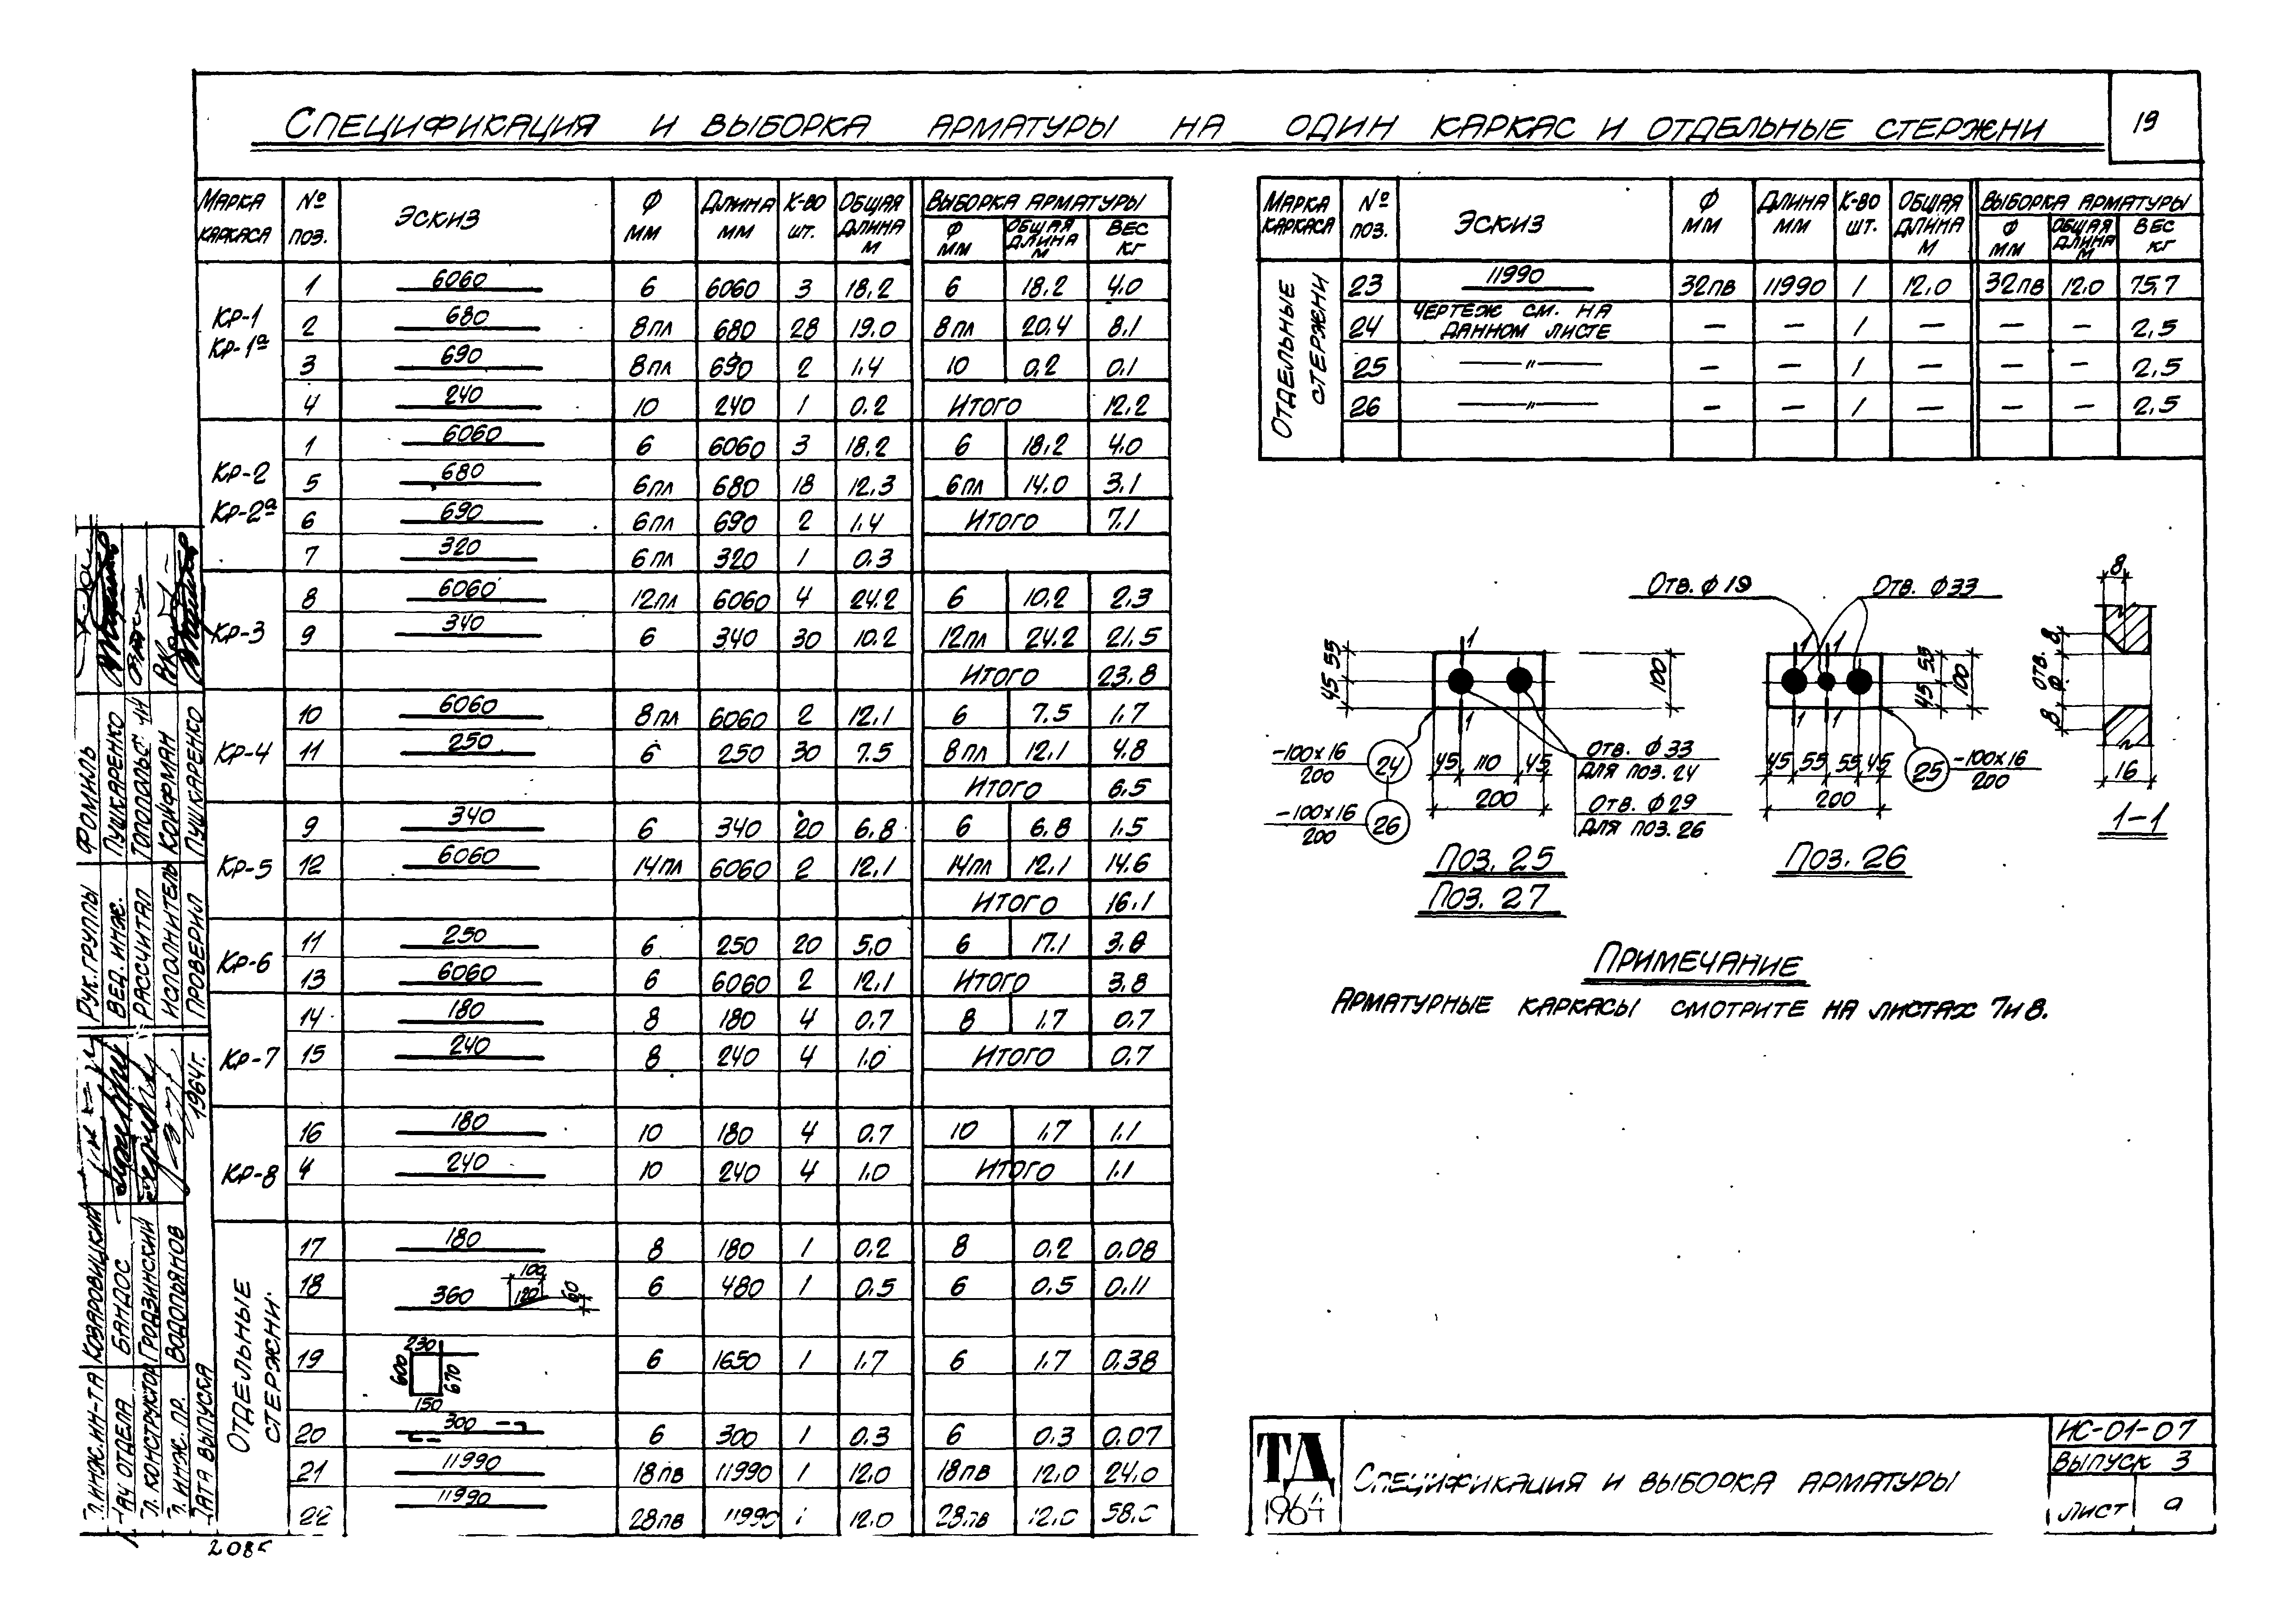 Спецификация и выборка арматуры на один каркас и отдельные стержни
19
Марка каркаса | № поз. | Эскиз | Ф мм | Длина мм | К-во шт. | Общая длина м | Выборка арматуры: Ф мм | Общая длина м | Вес кг
Кр-1 Кр-1а
1 | 6060 | 6 | 6060 | 3 | 18.2 | 6 | 18.2 | 4.0
2 | 680 | 8пл | 680 | 28 | 19.0 | 8пл | 20.4 | 8.1
3 | 690 | 8пл | 690 | 2 | 1.4 | 10 | 0.2 | 0.1
4 | 240 | 10 | 240 | 1 | 0.2 | Итого | 12.2
Кр-2 Кр-2а
1 | 6060 | 6 | 6060 | 3 | 18.2 | 6 | 18.2 | 4.0
5 | 680 | 6пл | 680 | 18 | 12.3 | 6пл | 14.0 | 3.1
6 | 690 | 6пл | 690 | 2 | 1.4 | Итого | 7.1
7 | 320 | 6пл | 320 | 1 | 0.3
Кр-3
8 | 6060 | 12пл | 6060 | 4 | 24.2 | 6 | 10.2 | 2.3
9 | 340 | 6 | 340 | 30 | 10.2 | 12пл | 24.2 | 21.5
Итого | 23.8
Кр-4
10 | 6060 | 8пл | 6060 | 2 | 12.1 | 6 | 7.5 | 1.7
11 | 250 | 6 | 250 | 30 | 7.5 | 8пл | 12.1 | 4.8
Итого | 6.5
Кр-5
9 | 340 | 6 | 340 | 20 | 6.8 | 6 | 6.8 | 1.5
12 | 6060 | 14пл | 6060 | 2 | 12.1 | 14пл | 12.1 | 14.6
Итого | 16.1
Кр-6
11 | 250 | 6 | 250 | 20 | 5.0 | 6 | 17.1 | 3.8
13 | 6060 | 6 | 6060 | 2 | 12.1 | Итого | 3.8
Кр-7
14 | 180 | 8 | 180 | 4 | 0.7 | 8 | 1.7 | 0.7
15 | 240 | 8 | 240 | 4 | 1.0 | Итого | 0.7
Кр-8
16 | 180 | 10 | 180 | 4 | 0.7 | 10 | 1.7 | 1.1
4 | 240 | 10 | 240 | 4 | 1.0 | Итого | 1.1
Отдельные стержни
17 | 180 | 8 | 180 | 1 | 0.2 | 8 | 0.2 | 0.08
18 | 360 100 120 60 | 6 | 480 | 1 | 0.5 | 6 | 0.5 | 0.11
19 | 230 600 670 150 | 6 | 1650 | 1 | 1.7 | 6 | 1.7 | 0.38
20 | 300 | 6 | 300 | 1 | 0.3 | 6 | 0.3 | 0.07
21 | 11990 | 18пв | 11990 | 1 | 12.0 | 18пв | 12.0 | 24.0
22 | 11990 | 28пв | 11990 | 1 | 12.0 | 28пв | 12.0 | 58.0
Марка каркаса | № поз. | Эскиз | Ф мм | Длина мм | К-во шт. | Общая длина м | Выборка арматуры: Ф мм | Общая длина м | Вес кг
Отдельные стержни
23 | 11990 | 32пв | 11990 | 1 | 12.0 | 32пв | 12.0 | 75.7
24 | Чертеж см. на данном листе | — | — | 1 | — | — | — | 2,5
25 | —"— | — | — | 1 | — | — | — | 2,5
26 | —"— | — | — | 1 | — | — | — | 2,5
Отв. ф 19
Отв. ф 33
45 55
1 1
100
45 110 45
200
-100х16
200
24
-100х16
200
26
Отв. ф 33
для поз. 24
Отв. ф 29
для поз. 26
Поз. 25
Поз. 27
1 1
1 1
45 55
100
45 55 55 45
200
25
-100х16
200
Поз. 26
8
8 отв. ф 8
16
1-1
Примечание
Арматурные каркасы смотрите на листах 7 и 8.
ТД
1964
Спецификация и выборка арматуры
ИС-01-07
Выпуск 3
Лист 9
Рук. группы Фомиль
Вед. инж. Пушкаренко
Рассчитал
Исполнитель Койфман
Проверил Пушкаренко
Гл. инж. ин-та Козаровицкий
Нач. отдела Бандос
Гл. конструктор Гродзинский
Гл. инж. пр. Водопьянов
Дата выпуска 1964г.